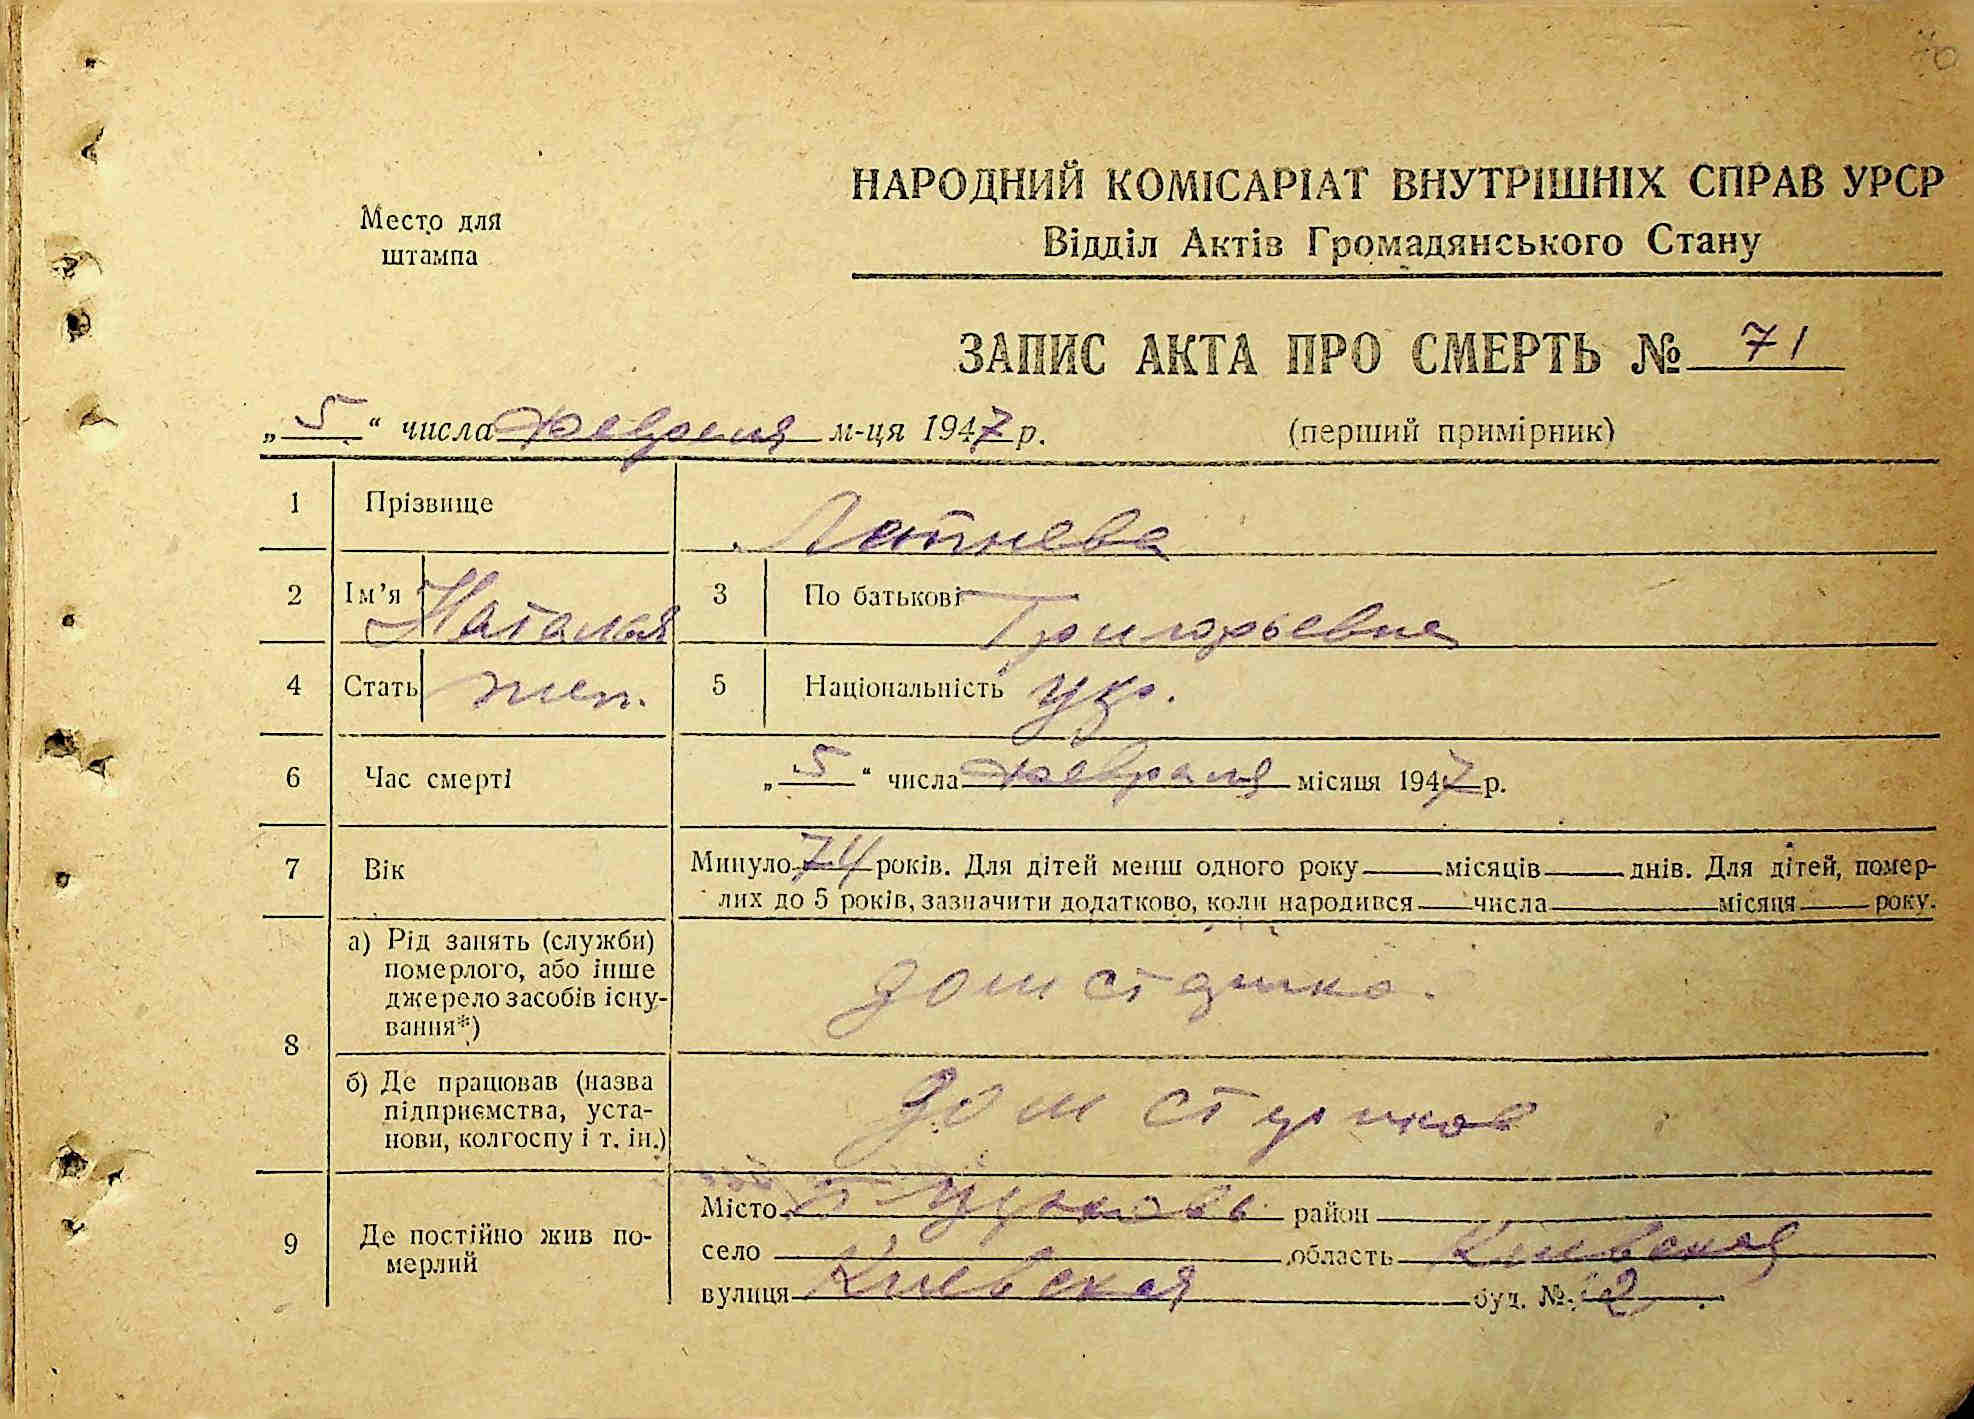 70
Место для
штампа
НАРОДНИЙ КОМІСАРІАТ ВНУТРІШНІХ СПРАВ УРСР
Відділ Актів Громадянського Стану
ЗАПИС АКТА ПРО СМЕРТЬ № 71
„5“ числа февраля м-ця 1947 р. (перший примірник)
1 Прізвище Летнева
2 Ім’я Наталья 3 По батькові Григорьевна
4 Стать жен. 5 Національність укр.
6 Час смерті „5“ числа февраля місяця 1947 р.
7 Вік Минуло 74 років. Для дітей менш одного року місяців днів. Для дітей, помер-
лих до 5 років, зазначити додатково, коли народився числа місяця року.
8 а) Рід занять (служби)
померлого, або інше
джерело засобів існу-
вання*)
дом старико.
б) Де працював (назва
підприємства, уста-
нови, колгоспу і т. ін.)
дом стариков
9 Де постійно жив по-
мерлий
Місто район
село область Киевская
вулиця Киевская буд. № 12